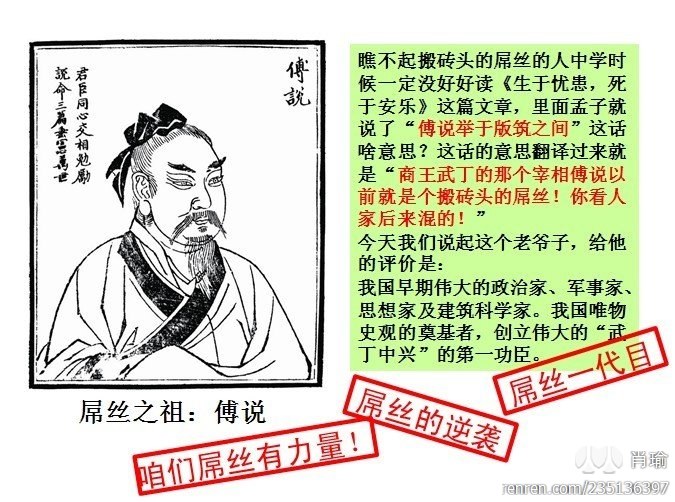 傅說
君臣同心交相勉勵
說命三篇
萬世
瞧不起搬砖头的屌丝的人中学时
候一定没好好读《生于忧患，死
于安乐》这篇文章，里面孟子就
说了“傅说举于版筑之间”这话
啥意思？这话的意思翻译过来就
是“商王武丁的那个宰相傅说以
前就是个搬砖头的屌丝！你看人
家后来混的！”
今天我们说起这个老爷子，给他
的评价是：
我国早期伟大的政治家、军事家、
思想家及建筑科学家。我国唯物
史观的奠基者，创立伟大的“武
丁中兴”的第一功臣。
屌丝之祖：傅说
屌丝一代目
屌丝的逆袭
咱们屌丝有力量！
肖瑜
renren.com/235136397